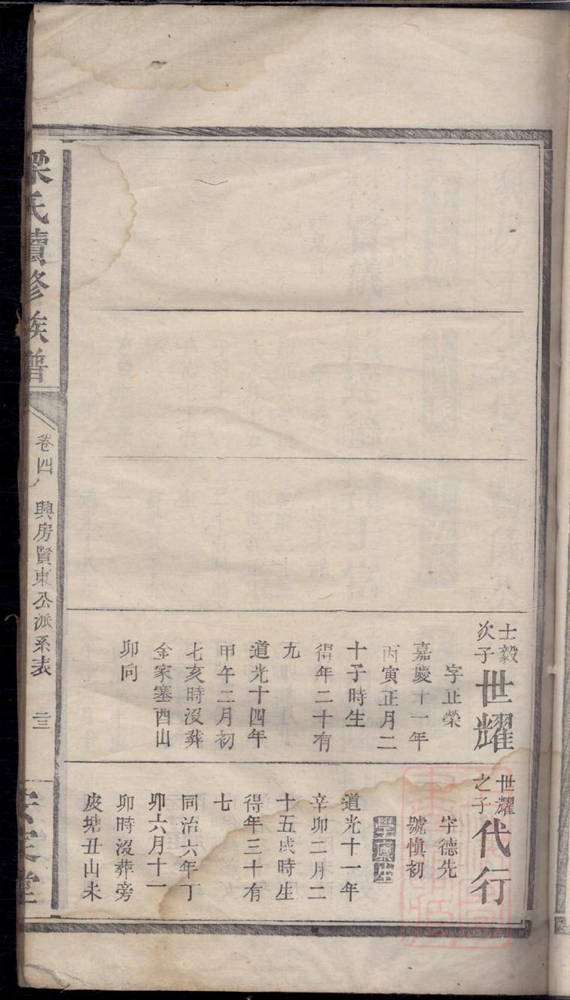 士毅
次子
世耀
字止榮
嘉慶十一年
丙寅正月二
十子時生
得年二十有
九
道光十四年
甲午二月初
七亥時沒葬
金家塞酉山
卯向
世耀
之子
代行
字德先
號愼初
道光十一年
辛卯二月二
十五戌時生
得年三十有
七
同治六年丁
卯六月十一
卯時沒葬旁
皮塘丑山未
梁氏續修族譜
卷四
興房賢東公派系表
三